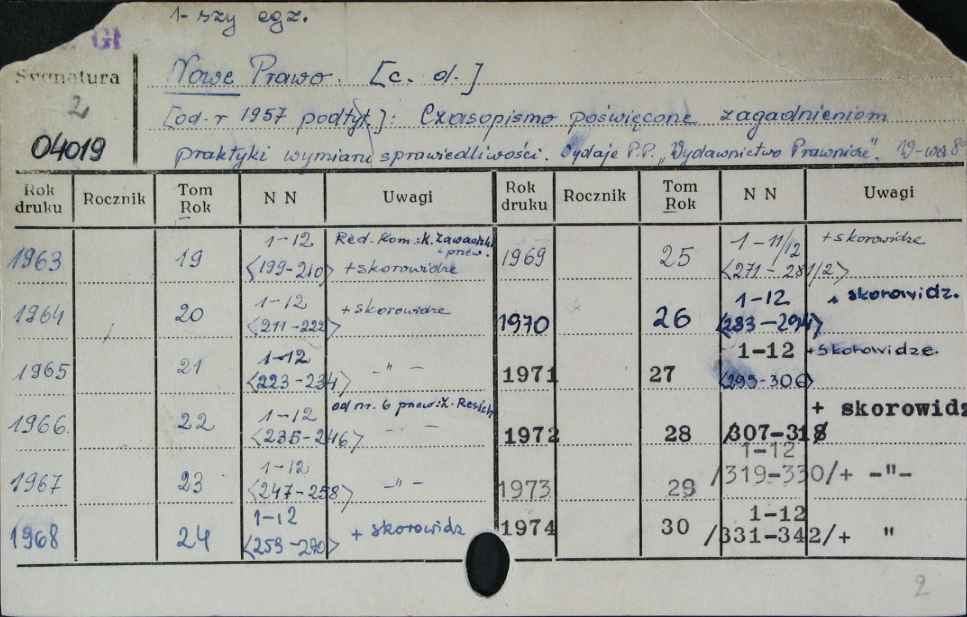 1-szy egz.
GI
Sygnatura
2
04019
Nowe Prawo. [c. d.]
[od r 1957 podtyt.]: Czasopismo poświęcone zagadnieniom
praktyki wymiaru sprawiedliwości. Wydaje P.P. "Wydawnictwo Prawnicze".
Rok druku Rocznik Tom Rok N N Uwagi Rok druku Rocznik Tom Rok N N Uwagi
1963 19 1-12 <199-210> Red. Kom.: K. Zawadzki + skorowidze
1964 20 1-12 <211-222> + skorowidze
1965 21 1-12 <223-234> -"-
1966. 22 1-12 <235-246> od nr. 6 przew.: Z. Resich -"-
1967 23 1-12 <247-258> -"-
1968 24 1-12 <259-270> + skorowidz
1969 25 1-11/12 <271-281/2> + skorowidze
1970 26 1-12 <283-294> + skorowidz.
1971 27 1-12 <295-306> + skorowidze.
1972 28 /307-318/ + skorowidz
1973 29 1-12 /319-330/+ -"-
1974 30 1-12 /331-342/+ "
2